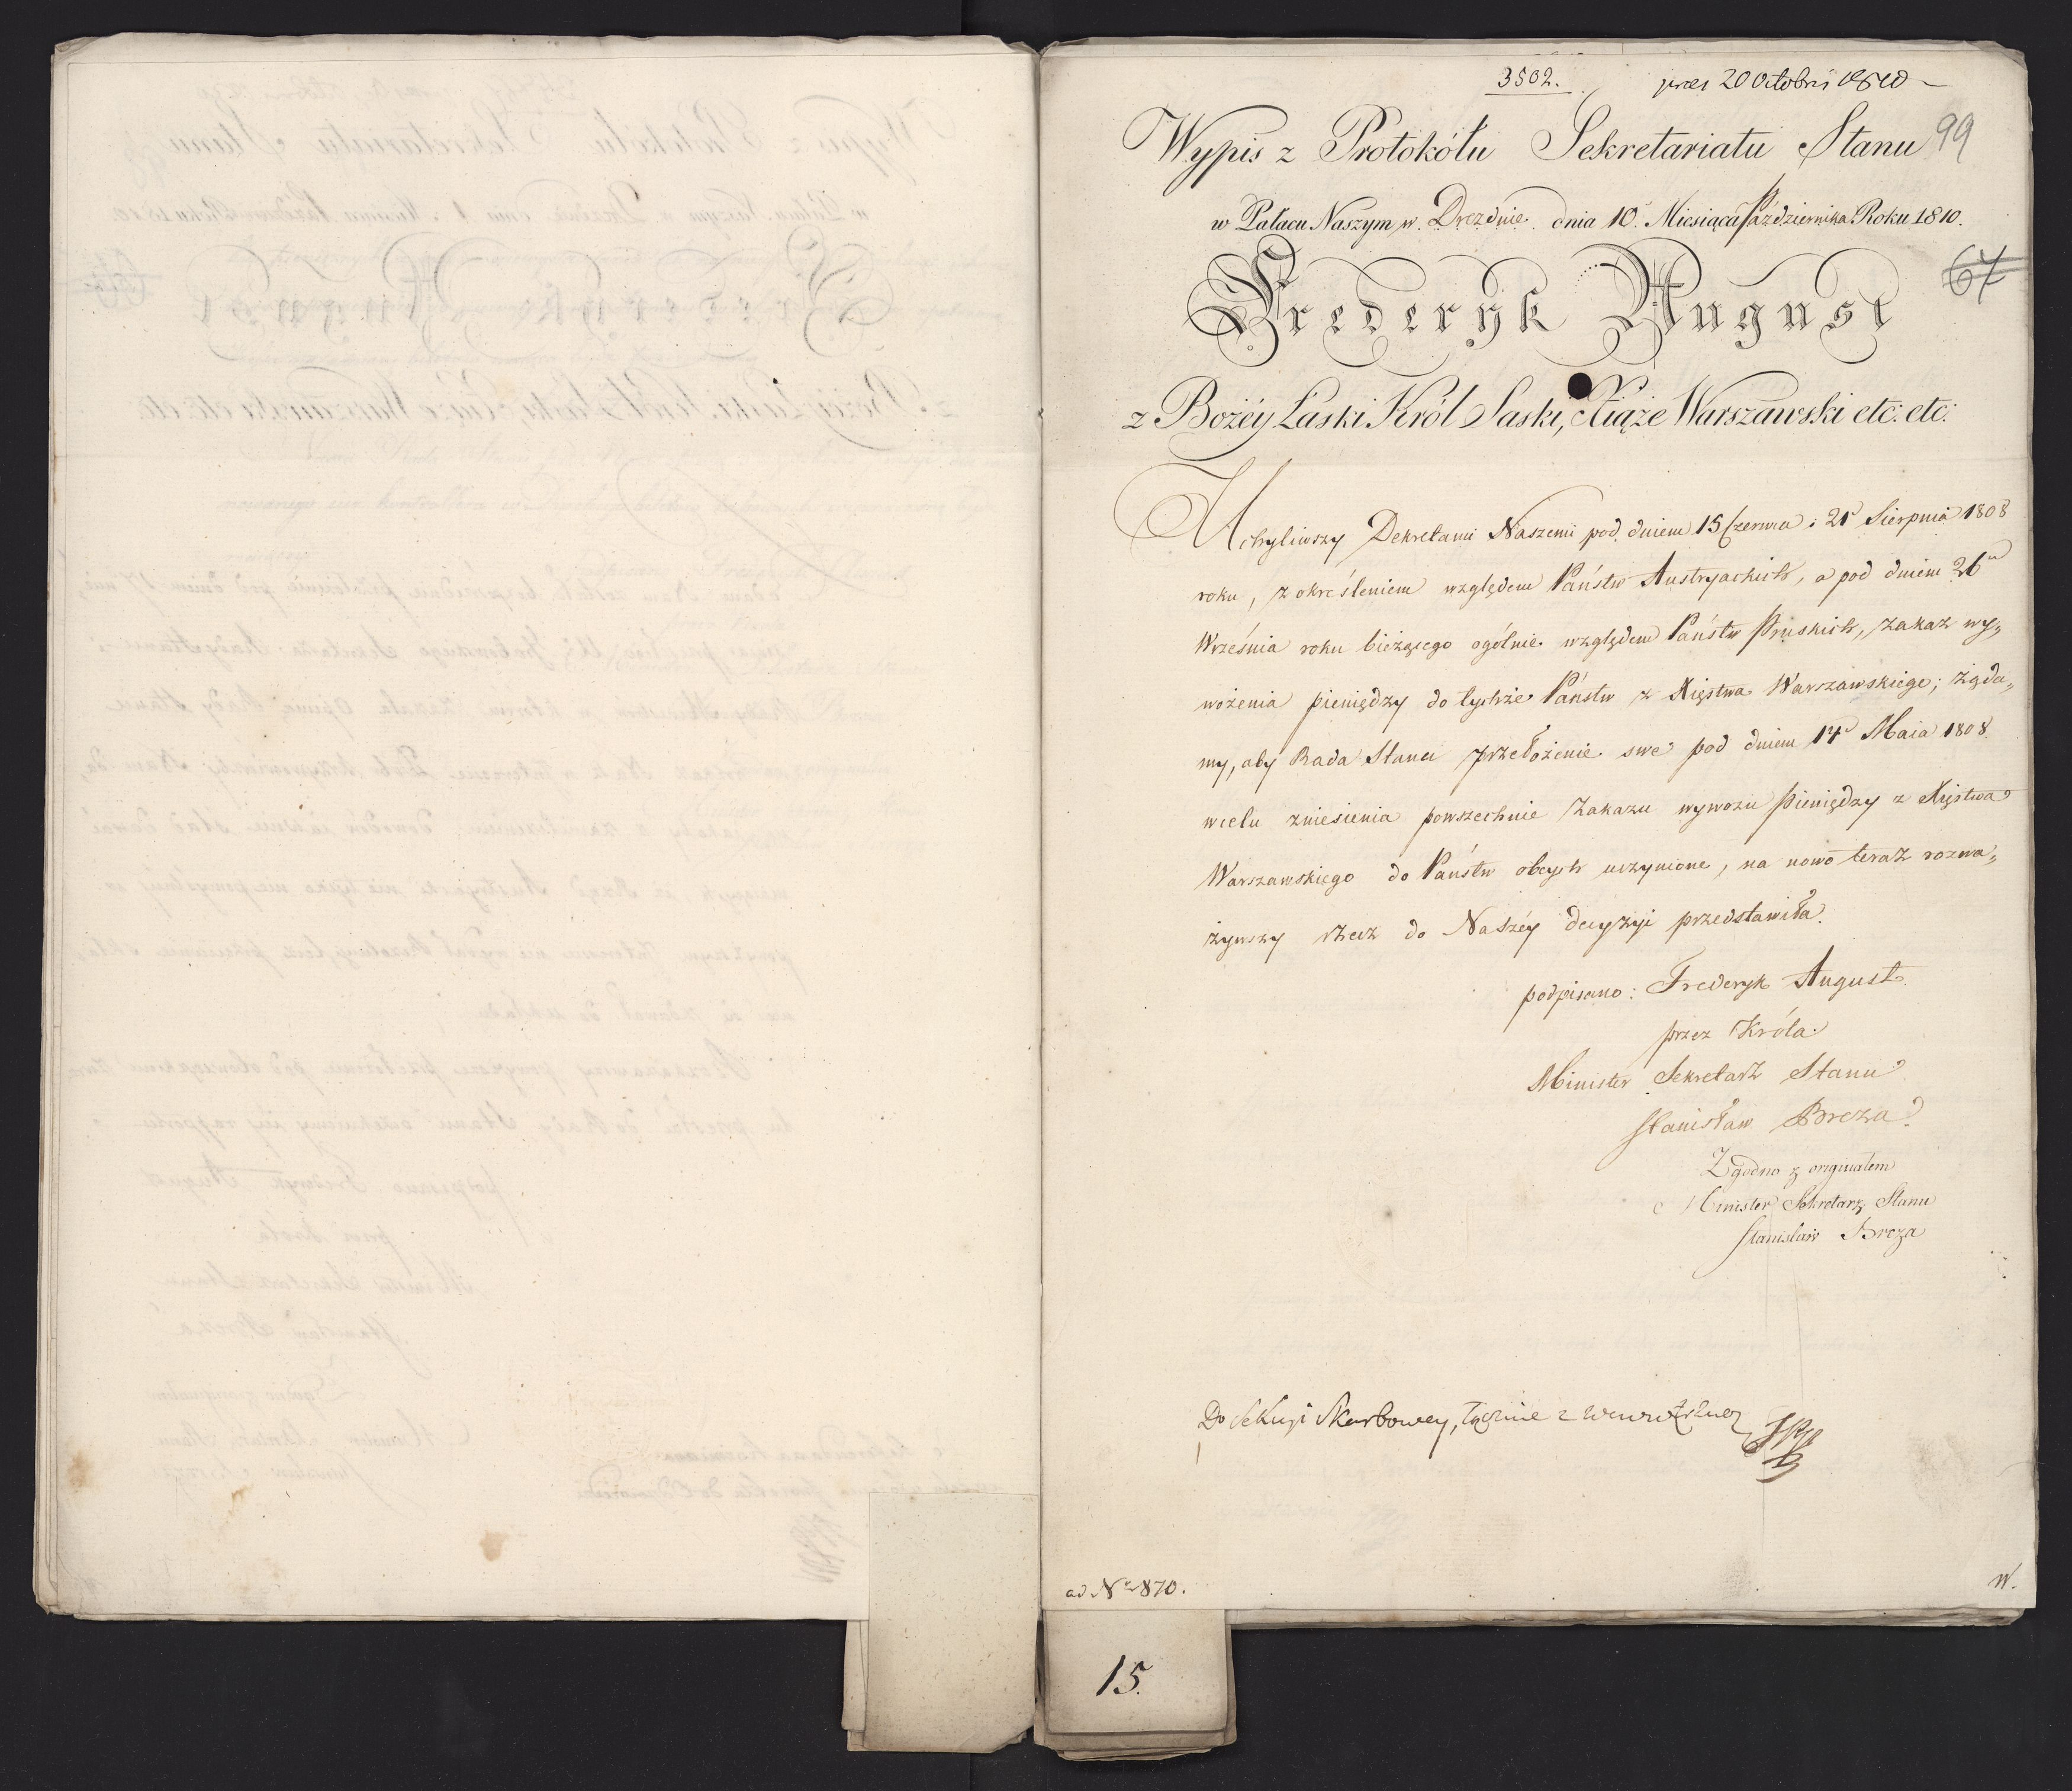 3502. pres 20 Octobris 1810
99
Wypis z Protokółu Sekretariatu Stanu
w Pałacu Naszym w Dreźdnie dnia 10. Miesiąca Października Roku 1810.
67
Frederyk August
z Bożéy Łaski Król Saski, Xiąże Warszawski etc: etc:
Uchyliwszy Dekretami Naszemi pod dniem 15 Czerwca i 21 Sierpnia 1808
roku, z określeniem względem Państw Austryackich, a pod dniem 26
Września roku bieżącego ogólnie względem Państw Pruskich, zakaz wy„
wożenia pieniędzy do tychże Państw z Xięstwa Warszawskiego; żąda„
my, aby Rada Stanu przełożenie swe pod dniem 14 Maia 1808.
wcelu zniesienia powszechnie Zakazu wywozu pieniędzy z Xięstwa
Warszawskiego do Państw obcych uczynione, na nowo teraz rozwa„
żywszy rzecz do Naszéy decyzyi przedstawiła.
podpisano: Frederyk August.
przez Króla
Minister Sekretarz Stanu
Stanisław Breza
Zgodno z originałem
Minister Sekretarz Stanu
Stanisław Breza
Do Sekcyi Skarbowey, łącznie z wewnętrzney
ad Nr 870.
W.
15.